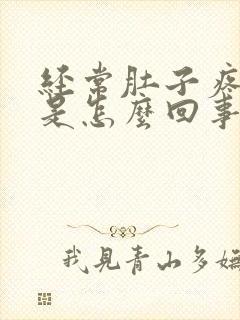 经常肚子疼
是怎麼回事
我見青山多嫵